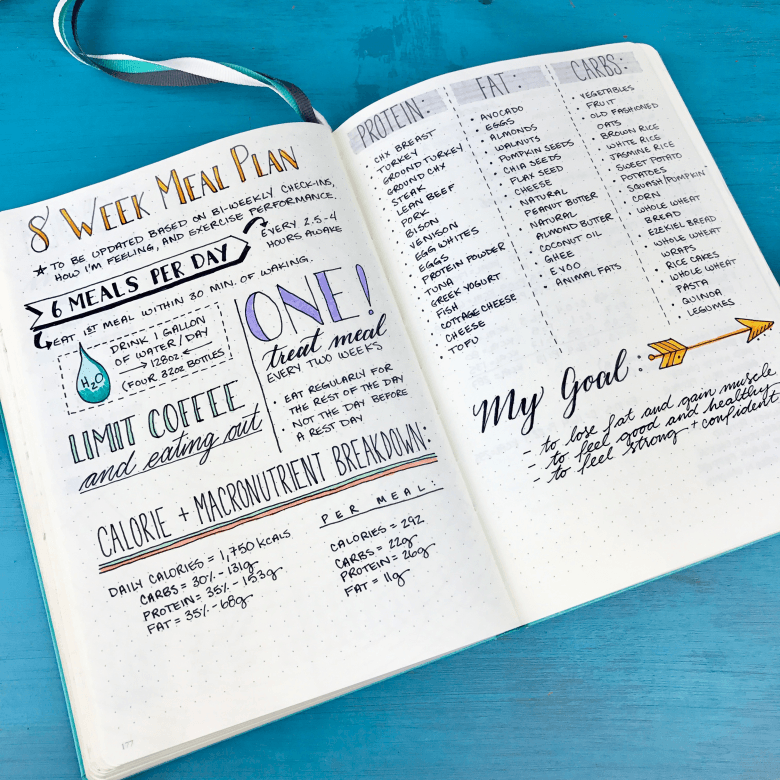 8 WEEK MEAL PLAN
★ TO BE UPDATED BASED ON BI-WEEKLY CHECK-INS,
HOW I'M FEELING, AND EXERCISE PERFORMANCE.
6 MEALS PER DAY
EVERY 2.5-4
HOURS AWAKE
EAT 1ST MEAL WITHIN 30 MIN. OF WAKING.
H2O
DRINK 1 GALLON
OF WATER/DAY
→ 128oz. ←
(FOUR 32oz BOTTLES)
LIMIT COFFEE
and eating out
ONE!
treat meal
EVERY TWO WEEKS
• EAT REGULARLY FOR
THE REST OF THE DAY
• NOT THE DAY BEFORE
A REST DAY
CALORIE + MACRONUTRIENT BREAKDOWN:
DAILY CALORIES = 1,750 KCALS
CARBS = 30% - 131g
PROTEIN = 35% - 153g
FAT = 35% - 68g
PER MEAL:
CALORIES = 292
CARBS = 22g
PROTEIN = 26g
FAT = 11g
177
PROTEIN:
• CHX BREAST
• TURKEY
• GROUND TURKEY
• GROUND CHX
• STEAK
• LEAN BEEF
• PORK
• BISON
• VENISON
• EGG WHITES
• EGGS
• PROTEIN POWDER
• TUNA
• GREEK YOGURT
• FISH
• COTTAGE CHEESE
• CHEESE
• TOFU
FAT:
• AVOCADO
• EGGS
• ALMONDS
• WALNUTS
• PUMPKIN SEEDS
• CHIA SEEDS
• FLAX SEED
• CHEESE
• NATURAL
PEANUT BUTTER
• NATURAL
ALMOND BUTTER
• COCONUT OIL
• GHEE
• EVOO
• ANIMAL FATS
CARBS:
• VEGETABLES
• FRUIT
• OLD FASHIONED
OATS
• BROWN RICE
• WHITE RICE
• JASMINE RICE
• SWEET POTATO
• POTATOES
• SQUASH/PUMPKIN
• CORN
• WHOLE WHEAT
BREAD
• EZEKIEL BREAD
• WHOLE WHEAT
WRAPS
• RICE CAKES
• WHOLE WHEAT
PASTA
• QUINOA
• LEGUMES
My Goal:
- to lose fat and gain muscle
- to feel good and healthy
- to feel strong + confident